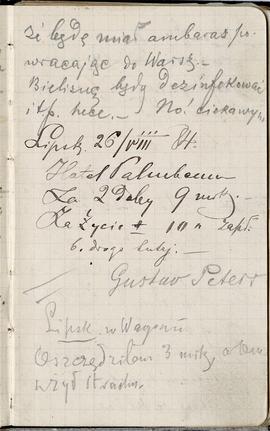 że będę miał ambaras po-
wracając do Warsz.-
Bieliznę będą dezinfekować
itp. hece. - No! ciekawym
Lipsk. 26/VIII 84.
Hotel Palmbaum
Za 2 Doby 9 mrk.
Za Życie + 10 " zapł.
6.
Gustav Peters
Lipsk. w Wagonie
Oszczędziłem 3 mrk,
strachu.